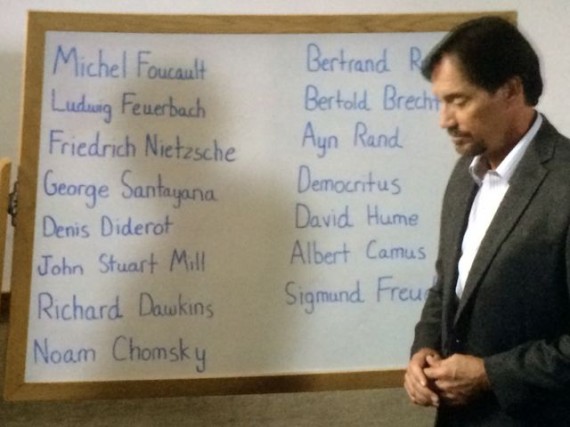 Michel Foucault
Ludwig Feuerbach
Friedrich Nietzsche
George Santayana
Denis Diderot
John Stuart Mill
Richard Dawkins
Noam Chomsky
Bertrand
Bertold Brecht
Ayn Rand
Democritus
David Hume
Albert Camus
Sigmund